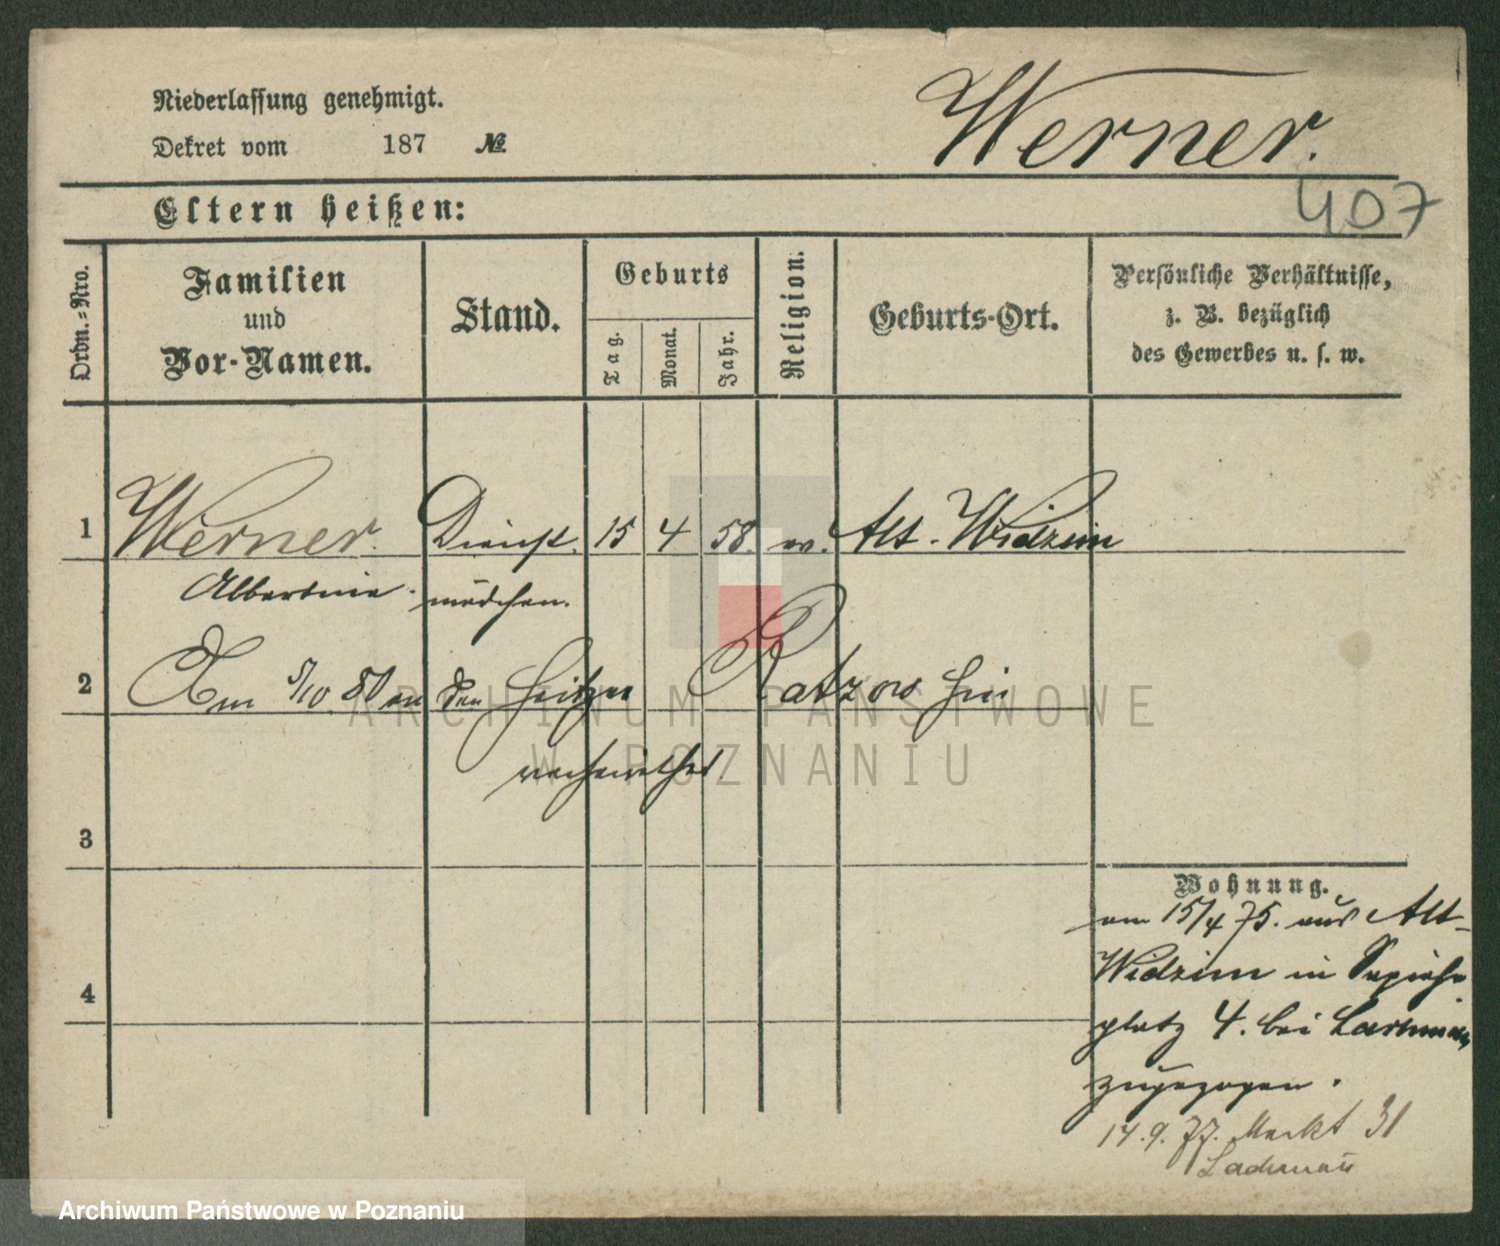 Niederlassung genehmigt.
Dekret vom 187 №
Werner.
407
Eltern heißen:
Ordn.-Nro.
Familien
und
Vor-Namen.
Stand.
Geburts
Tag.
Monat.
Jahr.
Religion.
Geburts-Ort.
Persönliche Verhältnisse,
z. B. bezüglich
des Gewerbes u. s. w.
1 Werner. Dienst. 15 4 58. ev. Alt-Widzim
Albertine mädchen.
2 Am 5/10 80 an den Heitzer Ratzow hier
verheirathet
3
4
Wohnung.
am 15/4 75. aus Alt-
Widzim in Sapieha
platz 4. bei Lachman
zugezogen.
14.9.77. Markt 31
Lachmañ
ARCHIWUM PAŃSTWOWE
W POZNANIU
Archiwum Państwowe w Poznaniu